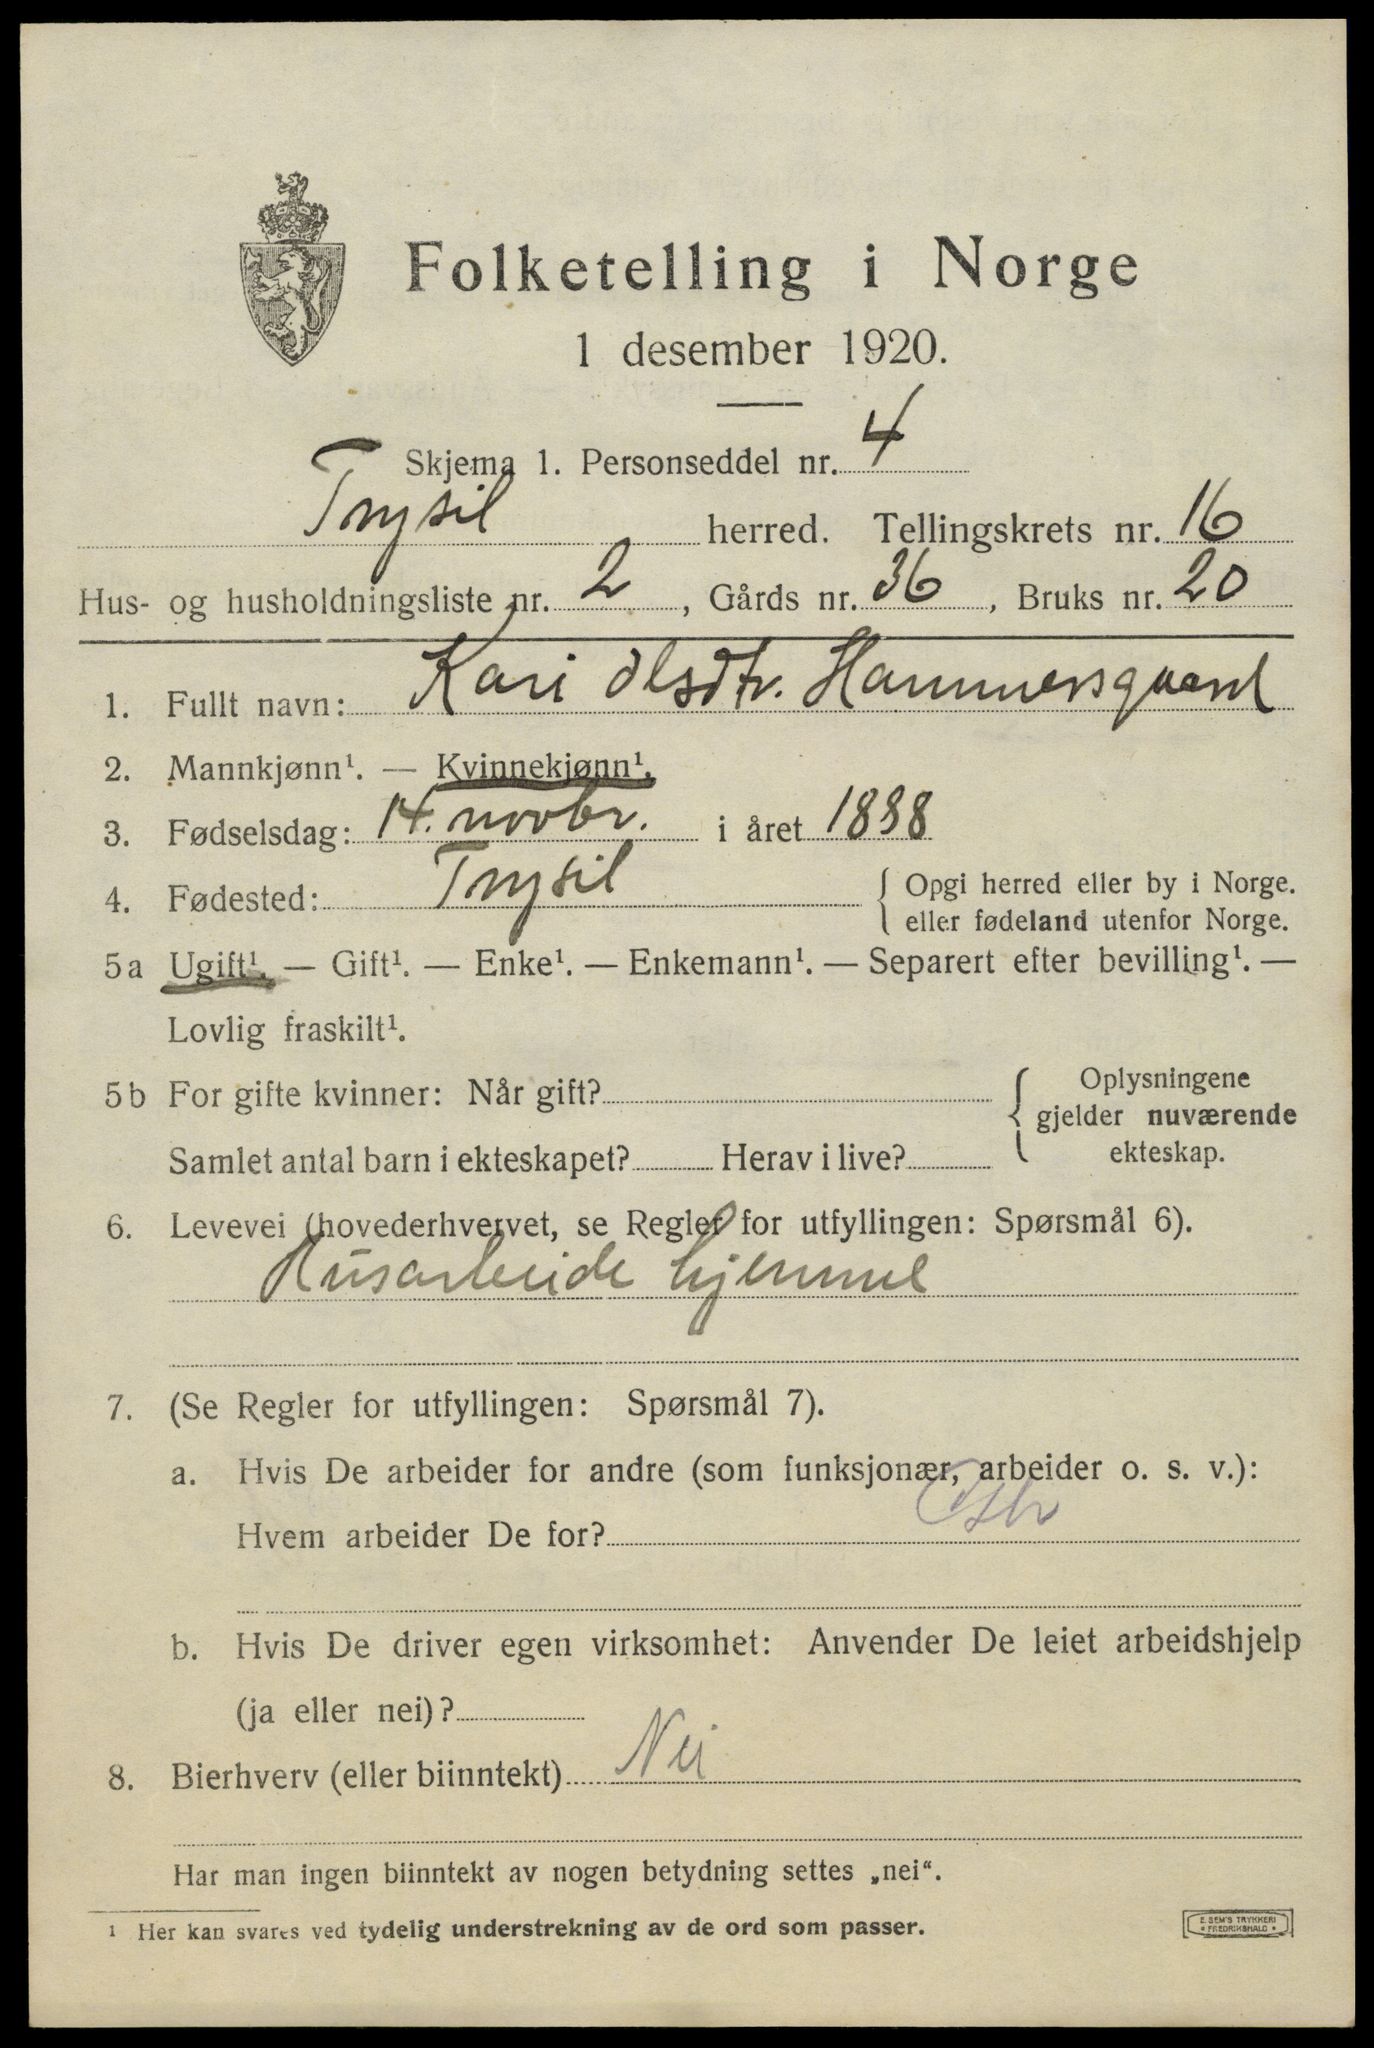 Folketelling i Norge
1 desember 1920.
Skjema 1. Personseddel nr. 4
Trysil herred. Tellingskrets nr. 16
Hus- og husholdningsliste nr. 2, Gårds nr. 36, Bruks nr. 20
1. Fullt navn: Kari Olsdtr. Hammersgaard
2. Mannkjønn¹. — Kvinnekjønn¹.
3. Fødselsdag: 14. novbr. i året 1898
4. Fødested: Trysil { Opgi herred eller by i Norge.
eller fødeland utenfor Norge.
5a Ugift¹. — Gift¹. — Enke¹. — Enkemann¹. — Separert efter bevilling¹. —
Lovlig fraskilt¹.
5b For gifte kvinner: Når gift? { Oplysningene
gjelder nuværende
ekteskap.
Samlet antal barn i ekteskapet? Herav i live?
6. Levevei (hovederhvervet, se Regler for utfyllingen: Spørsmål 6).
Husarbeide hjemme
7. (Se Regler for utfyllingen: Spørsmål 7).
a. Hvis De arbeider for andre (som funksjonær, arbeider o. s. v.):
Hvem arbeider De for?
b. Hvis De driver egen virksomhet: Anvender De leiet arbeidshjelp
(ja eller nei)?
8. Bierhverv (eller biinntekt) Nei
Har man ingen biinntekt av nogen betydning settes „nei“.
¹ Her kan svares ved tydelig understrekning av de ord som passer.
E. SEM'S TRYKKERI
• FREDRIKSHALD •